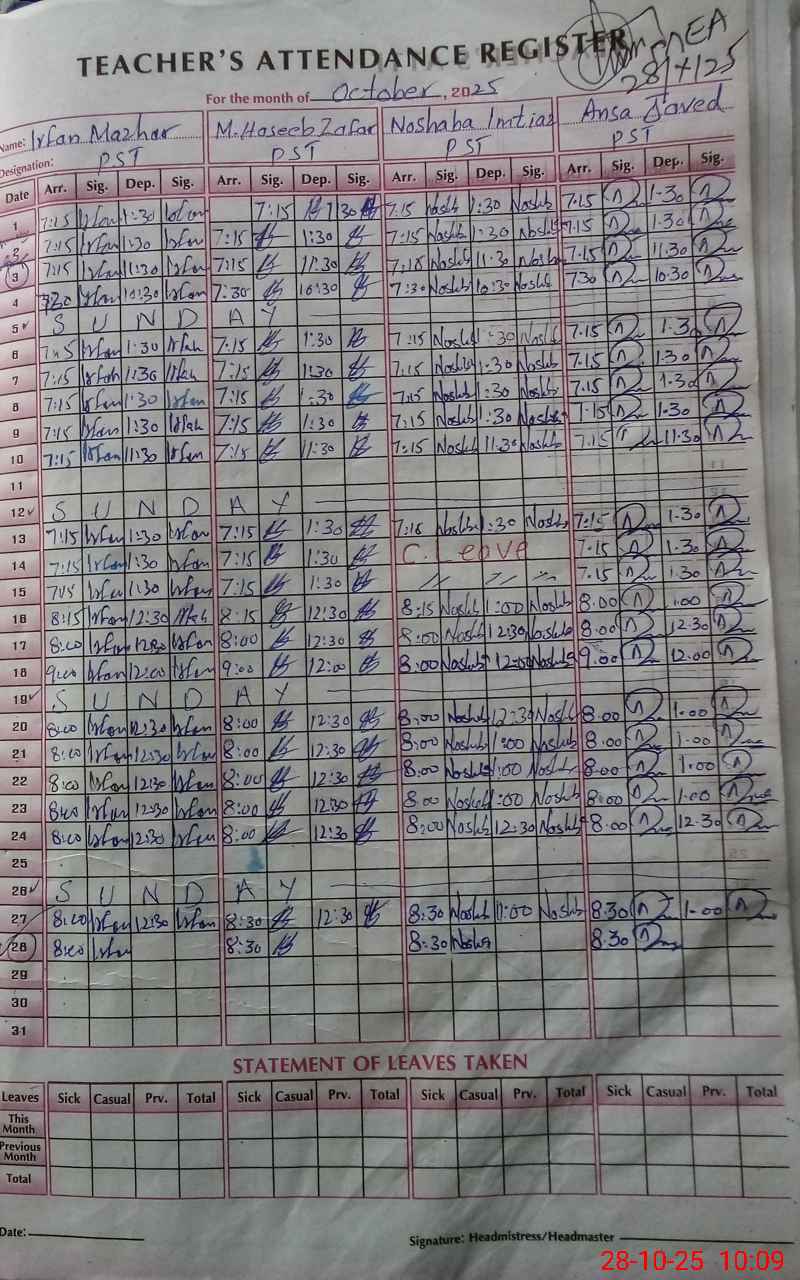 TEACHER'S ATTENDANCE REGISTER
EA
28/7/25
For the month of October, 2025
Name: Irfan Mazhar M. Haseeb Zafar Noshaba Imtiaz Ansa Javed
Designation: PST PST PST PST
Date Arr. Sig. Dep. Sig. Arr. Sig. Dep. Sig. Arr. Sig. Dep. Sig. Arr. Sig. Dep. Sig.
1 7:15 Irfan 1:30 Irfan 7:15 1:30 7:15 Noshb 1:30 Noshb 7.15 1.30
2 7:15 Irfan 1:30 Irfan 7:15 1:30 7:15 Noshb 1:30 Noshb 7.15 1.30
3 7:15 Irfan 11:30 Irfan 7:15 11:30 7:15 Noshb 11:30 Noshb 7.15 11.30
4 7:30 Irfan 10:30 Irfan 7:30 10:30 7:30 Noshb 10:30 Noshb 7.30 10.30
5 S U N D A Y
6 7:15 Irfan 1:30 Irfan 7:15 1:30 7:15 Noshb 1:30 Noshb 7.15 1.30
7 7:15 Irfan 1:30 Irfan 7:15 1:30 7:15 Noshb 1:30 Noshb 7.15 1.30
8 7:15 Irfan 1:30 Irfan 7:15 1:30 7:15 Noshb 1:30 Noshb 7.15 1.30
9 7:15 Irfan 1:30 Irfan 7:15 1:30 7:15 Noshb 1:30 Noshb 7.15 1.30
10 7:15 Irfan 11:30 Irfan 7:15 11:30 7:15 Noshb 11:30 Noshb 7.15 11.30
11
12 S U N D A Y
13 7:15 Irfan 1:30 Irfan 7:15 1:30 7:15 Noshb 1:30 Noshb 7:15 1.30
14 7:15 Irfan 1:30 Irfan 7:15 1:30 C. Leave 7.15 1.30
15 7:15 Irfan 1:30 Irfan 7:15 1:30 7.15 1.30
16 8:15 Irfan 12:30 Irfan 8:15 12:30 8:15 Noshb 1:00 Noshb 8.00 1.00
17 8:00 Irfan 12:30 Irfan 8:00 12:30 8:00 Noshb 12:30 Noshb 8.00 12.30
18 9:00 Irfan 12:00 Irfan 9:00 12:00 8:00 Noshb 12:00 Noshb 9.00 12.00
19 S U N D A Y
20 8:00 Irfan 12:30 Irfan 8:00 12:30 8:00 Noshb 12:30 Noshb 8.00 1.00
21 8:00 Irfan 12:30 Irfan 8:00 12:30 8:00 Noshb 1:00 Noshb 8.00 1.00
22 8:00 Irfan 12:30 Irfan 8:00 12:30 8:00 Noshb 1:00 Noshb 8.00 1.00
23 8:00 Irfan 12:30 Irfan 8:00 12:30 8:00 Noshb 1:00 Noshb 8.00 1.00
24 8:00 Irfan 12:30 Irfan 8:00 12:30 8:00 Noshb 12:30 Noshb 8.00 12.30
25
26 S U N D A Y
27 8:00 Irfan 12:30 Irfan 8:30 12:30 8:30 Noshb 1:00 Noshb 8.30 1.00
28 8:00 Irfan 8:30 8:30 Noshb 8.30
29
30
31
STATEMENT OF LEAVES TAKEN
Leaves Sick Casual Prv. Total Sick Casual Prv. Total Sick Casual Prv. Total Sick Casual Prv. Total
This Month
Previous Month
Total
Date:
Signature: Headmistress/Headmaster
28-10-25 10:09